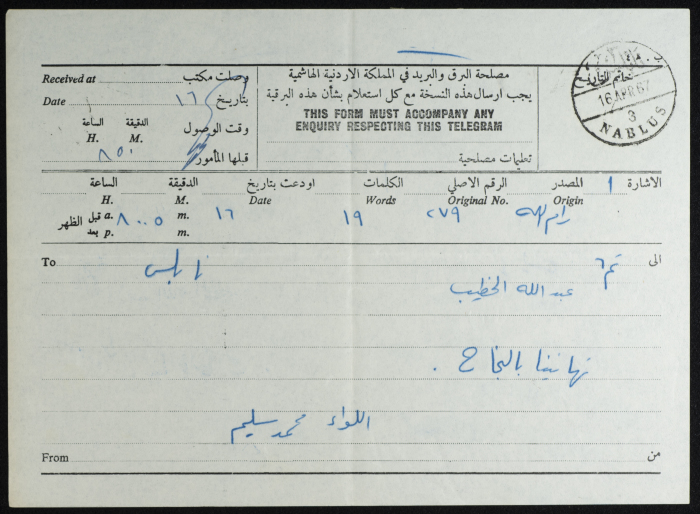 Received at وصلت مكتب
Date ١٦ بتاريخ
الساعة الدقيقة وقت الوصول
H. M.
٨٥ قبلها المأمور
مصلحة البرق والبريد في المملكة الاردنية الهاشمية
يجب ارسال هذه النسخة مع كل استعلام بشأن هذه البرقية
THIS FORM MUST ACCOMPANY ANY
ENQUIRY RESPECTING THIS TELEGRAM
تعليمات مصلحية
خاتم التاريخ
16 APR 67
3
NABLUS
الاشارة ١ المصدر الرقم الاصلي الكلمات اودعت بتاريخ الدقيقة الساعة
Origin Original No. Words Date M. H.
رام الله ٢٧٩ ١٩ ١٦ m. ٨٠٠٥ a. قبل الظهر
m. p. بعد
To الى
نابلس
عبد الله الخطيب
تهانينا بالنجاح .
اللواء محمد سليم
From من